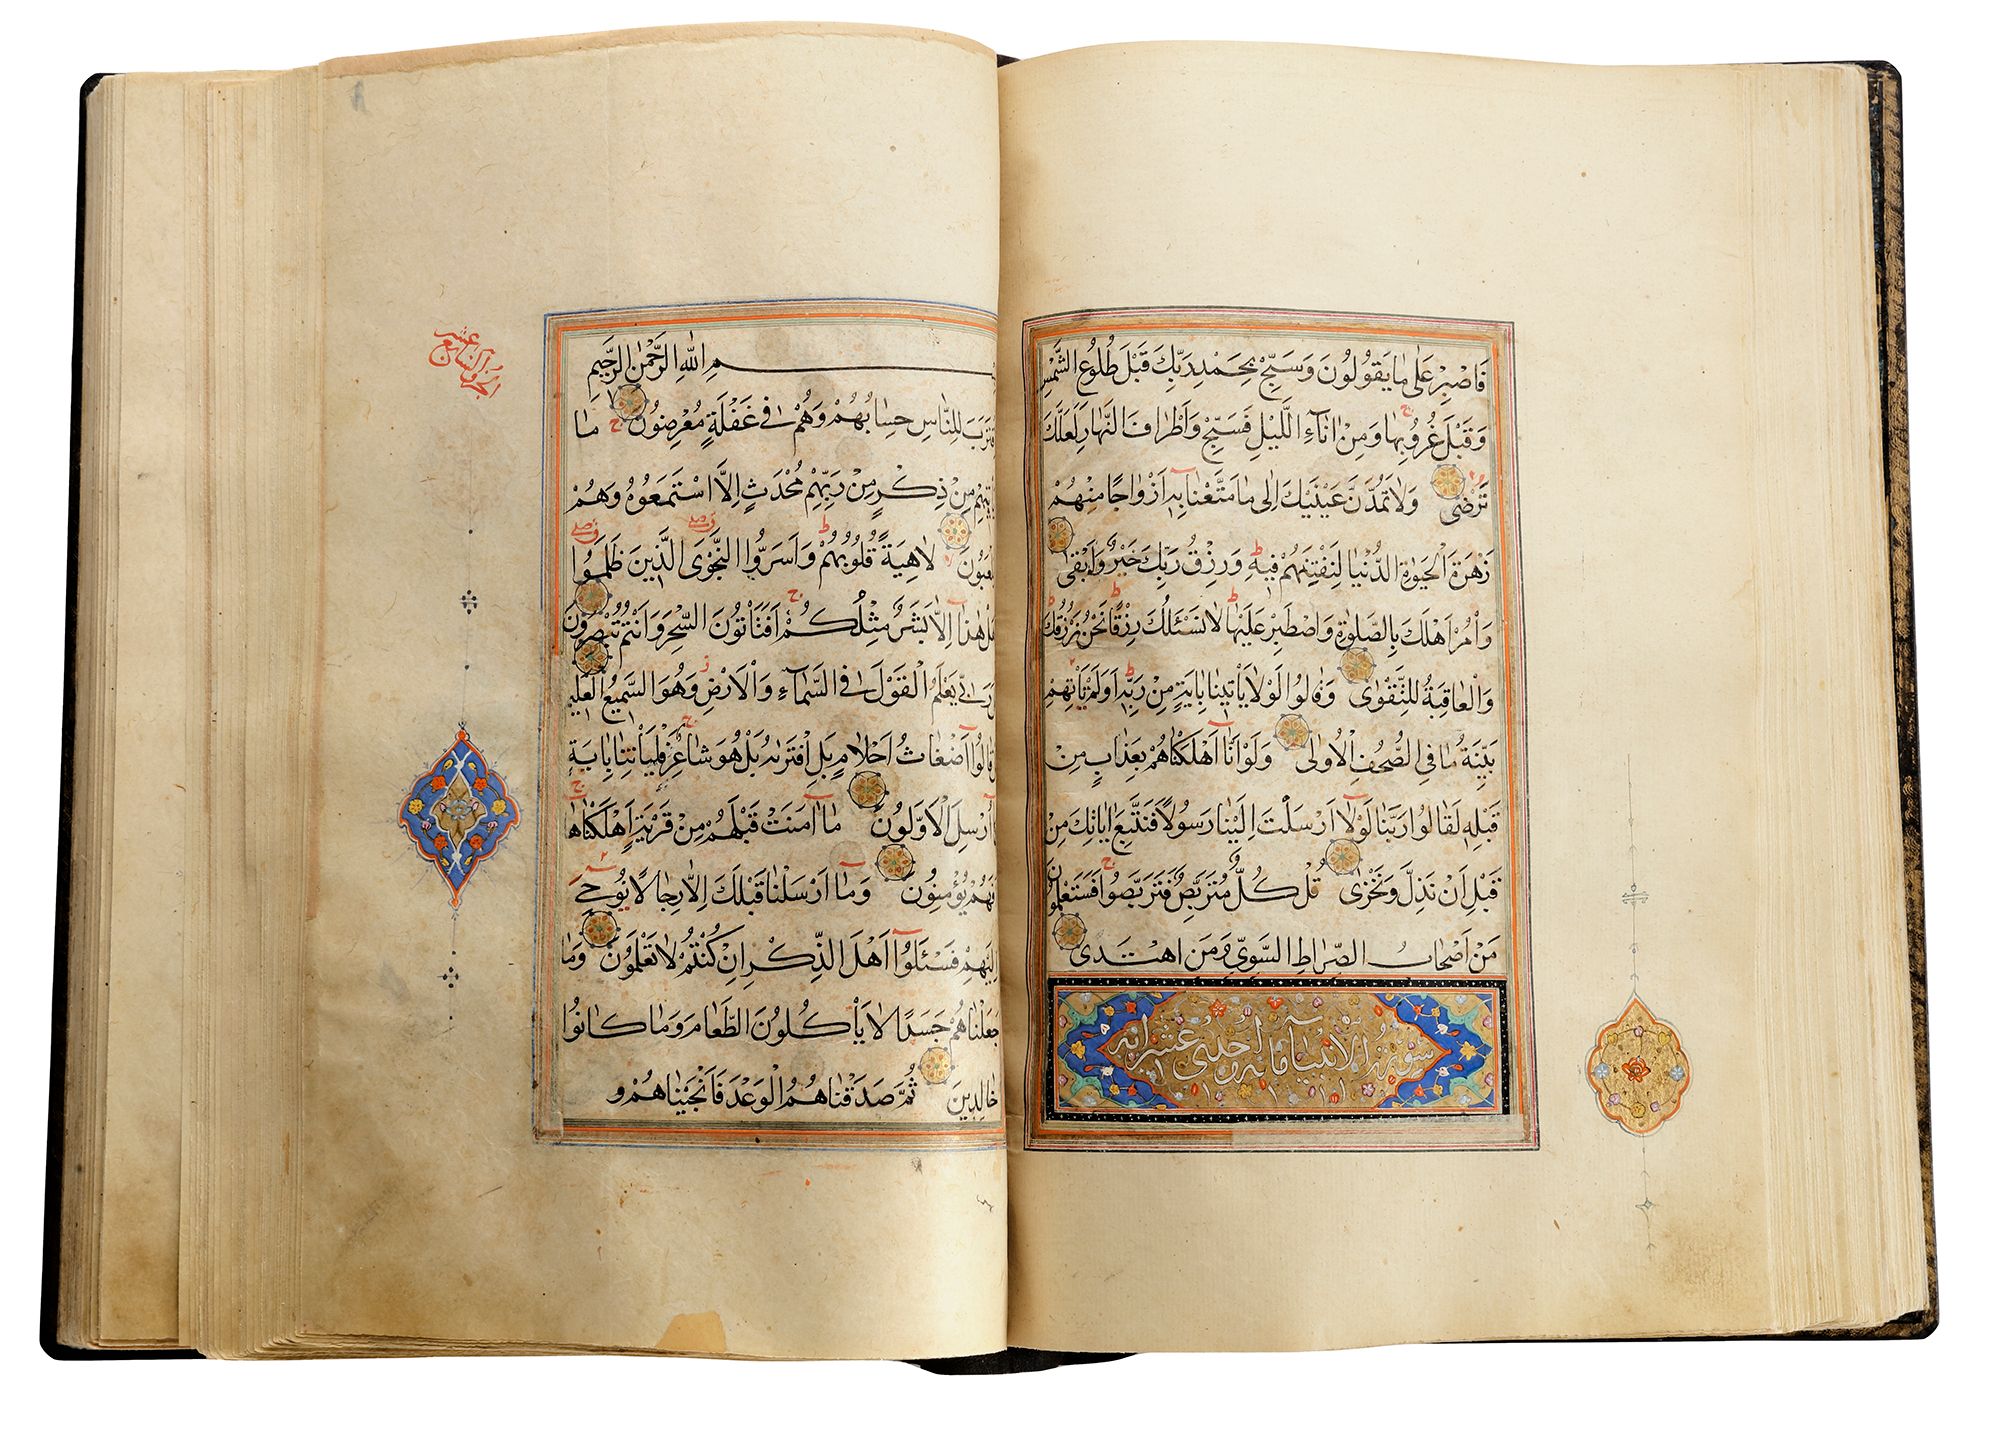 فَاصْبِرْ عَلٰى مَا يَقُولُونَ وَسَبِّحْ بِحَمْدِ رَبِّكَ قَبْلَ طُلُوعِ الشَّمْسِ
وَقَبْلَ غُرُوبِهَا وَمِنْ اٰنَآءِ اللَّيْلِ فَسَبِّحْ وَاَطْرَافَ النَّهَارِ لَعَلَّكَ
تَرْضٰى وَلَا تَمُدَّنَّ عَيْنَيْكَ اِلٰى مَا مَتَّعْنَا بِهٖ اَزْوَاجًا مِنْهُمْ
زَهْرَةَ الْحَيٰوةِ الدُّنْيَا لِنَفْتِنَهُمْ فِيهِ وَرِزْقُ رَبِّكَ خَيْرٌ وَاَبْقٰى
وَأْمُرْ اَهْلَكَ بِالصَّلٰوةِ وَاصْطَبِرْ عَلَيْهَا لَا نَسْئَلُكَ رِزْقًا نَحْنُ نَرْزُقُكَ
وَالْعَاقِبَةُ لِلتَّقْوٰى وَقَالُوا لَوْلَا يَأْتِينَا بِاٰيَةٍ مِنْ رَبِّهٖ اَوَلَمْ يَأْتِهِمْ
بَيِّنَةُ مَا فِي الصُّحُفِ الْاُولٰى وَلَوْ اَنَّآ اَهْلَكْنَاهُمْ بِعَذَابٍ مِنْ
قَبْلِهٖ لَقَالُوا رَبَّنَا لَوْلَآ اَرْسَلْتَ اِلَيْنَا رَسُولًا فَنَتَّبِعَ اٰيَاتِكَ مِنْ
قَبْلِ اَنْ نَذِلَّ وَنَخْزٰى قُلْ كُلٌّ مُتَرَبِّصٌ فَتَرَبَّصُوا فَسَتَعْلَمُونَ
مَنْ اَصْحَابُ الصِّرَاطِ السَّوِيِّ وَمَنِ اهْتَدٰى
سورة الانبيا مائة و احدى عشر اية
الجزو السابع عشر
ـمِ اللّٰهِ الرَّحْمٰنِ الرَّحِيمِ
قْتَرَبَ لِلنَّاسِ حِسَابُهُمْ وَهُمْ فِي غَفْلَةٍ مُعْرِضُونَ مَا
يَأْتِيهِمْ مِنْ ذِكْرٍ مِنْ رَبِّهِمْ مُحْدَثٍ اِلَّا اسْتَمَعُوهُ وَهُمْ
يَلْعَبُونَ لَاهِيَةً قُلُوبُهُمْ وَاَسَرُّوا النَّجْوَى الَّذِينَ ظَلَمُوا
هَلْ هٰذَآ اِلَّا بَشَرٌ مِثْلُكُمْ اَفَتَأْتُونَ السِّحْرَ وَاَنْتُمْ تُبْصِرُونَ
رَبِّي يَعْلَمُ الْقَوْلَ فِي السَّمَآءِ وَالْاَرْضِ وَهُوَ السَّمِيعُ الْعَلِيمُ
قَالُوآ اَضْغَاثُ اَحْلَامٍ بَلِ افْتَرٰيهُ بَلْ هُوَ شَاعِرٌ فَلْيَأْتِنَا بِاٰيَةٍ
اُرْسِلَ الْاَوَّلُونَ مَآ اٰمَنَتْ قَبْلَهُمْ مِنْ قَرْيَةٍ اَهْلَكْنَاهَا
فَهُمْ يُؤْمِنُونَ وَمَآ اَرْسَلْنَا قَبْلَكَ اِلَّا رِجَالًا يُوحٰى
اِلَيْهِمْ فَسْئَلُوآ اَهْلَ الذِّكْرِ اِنْ كُنْتُمْ لَا تَعْلَمُونَ وَمَا
جَعَلْنَاهُمْ جَسَدًا لَا يَأْكُلُونَ الطَّعَامَ وَمَا كَانُوا
خَالِدِينَ ثُمَّ صَدَقْنَاهُمُ الْوَعْدَ فَاَنْجَيْنَاهُمْ وَ